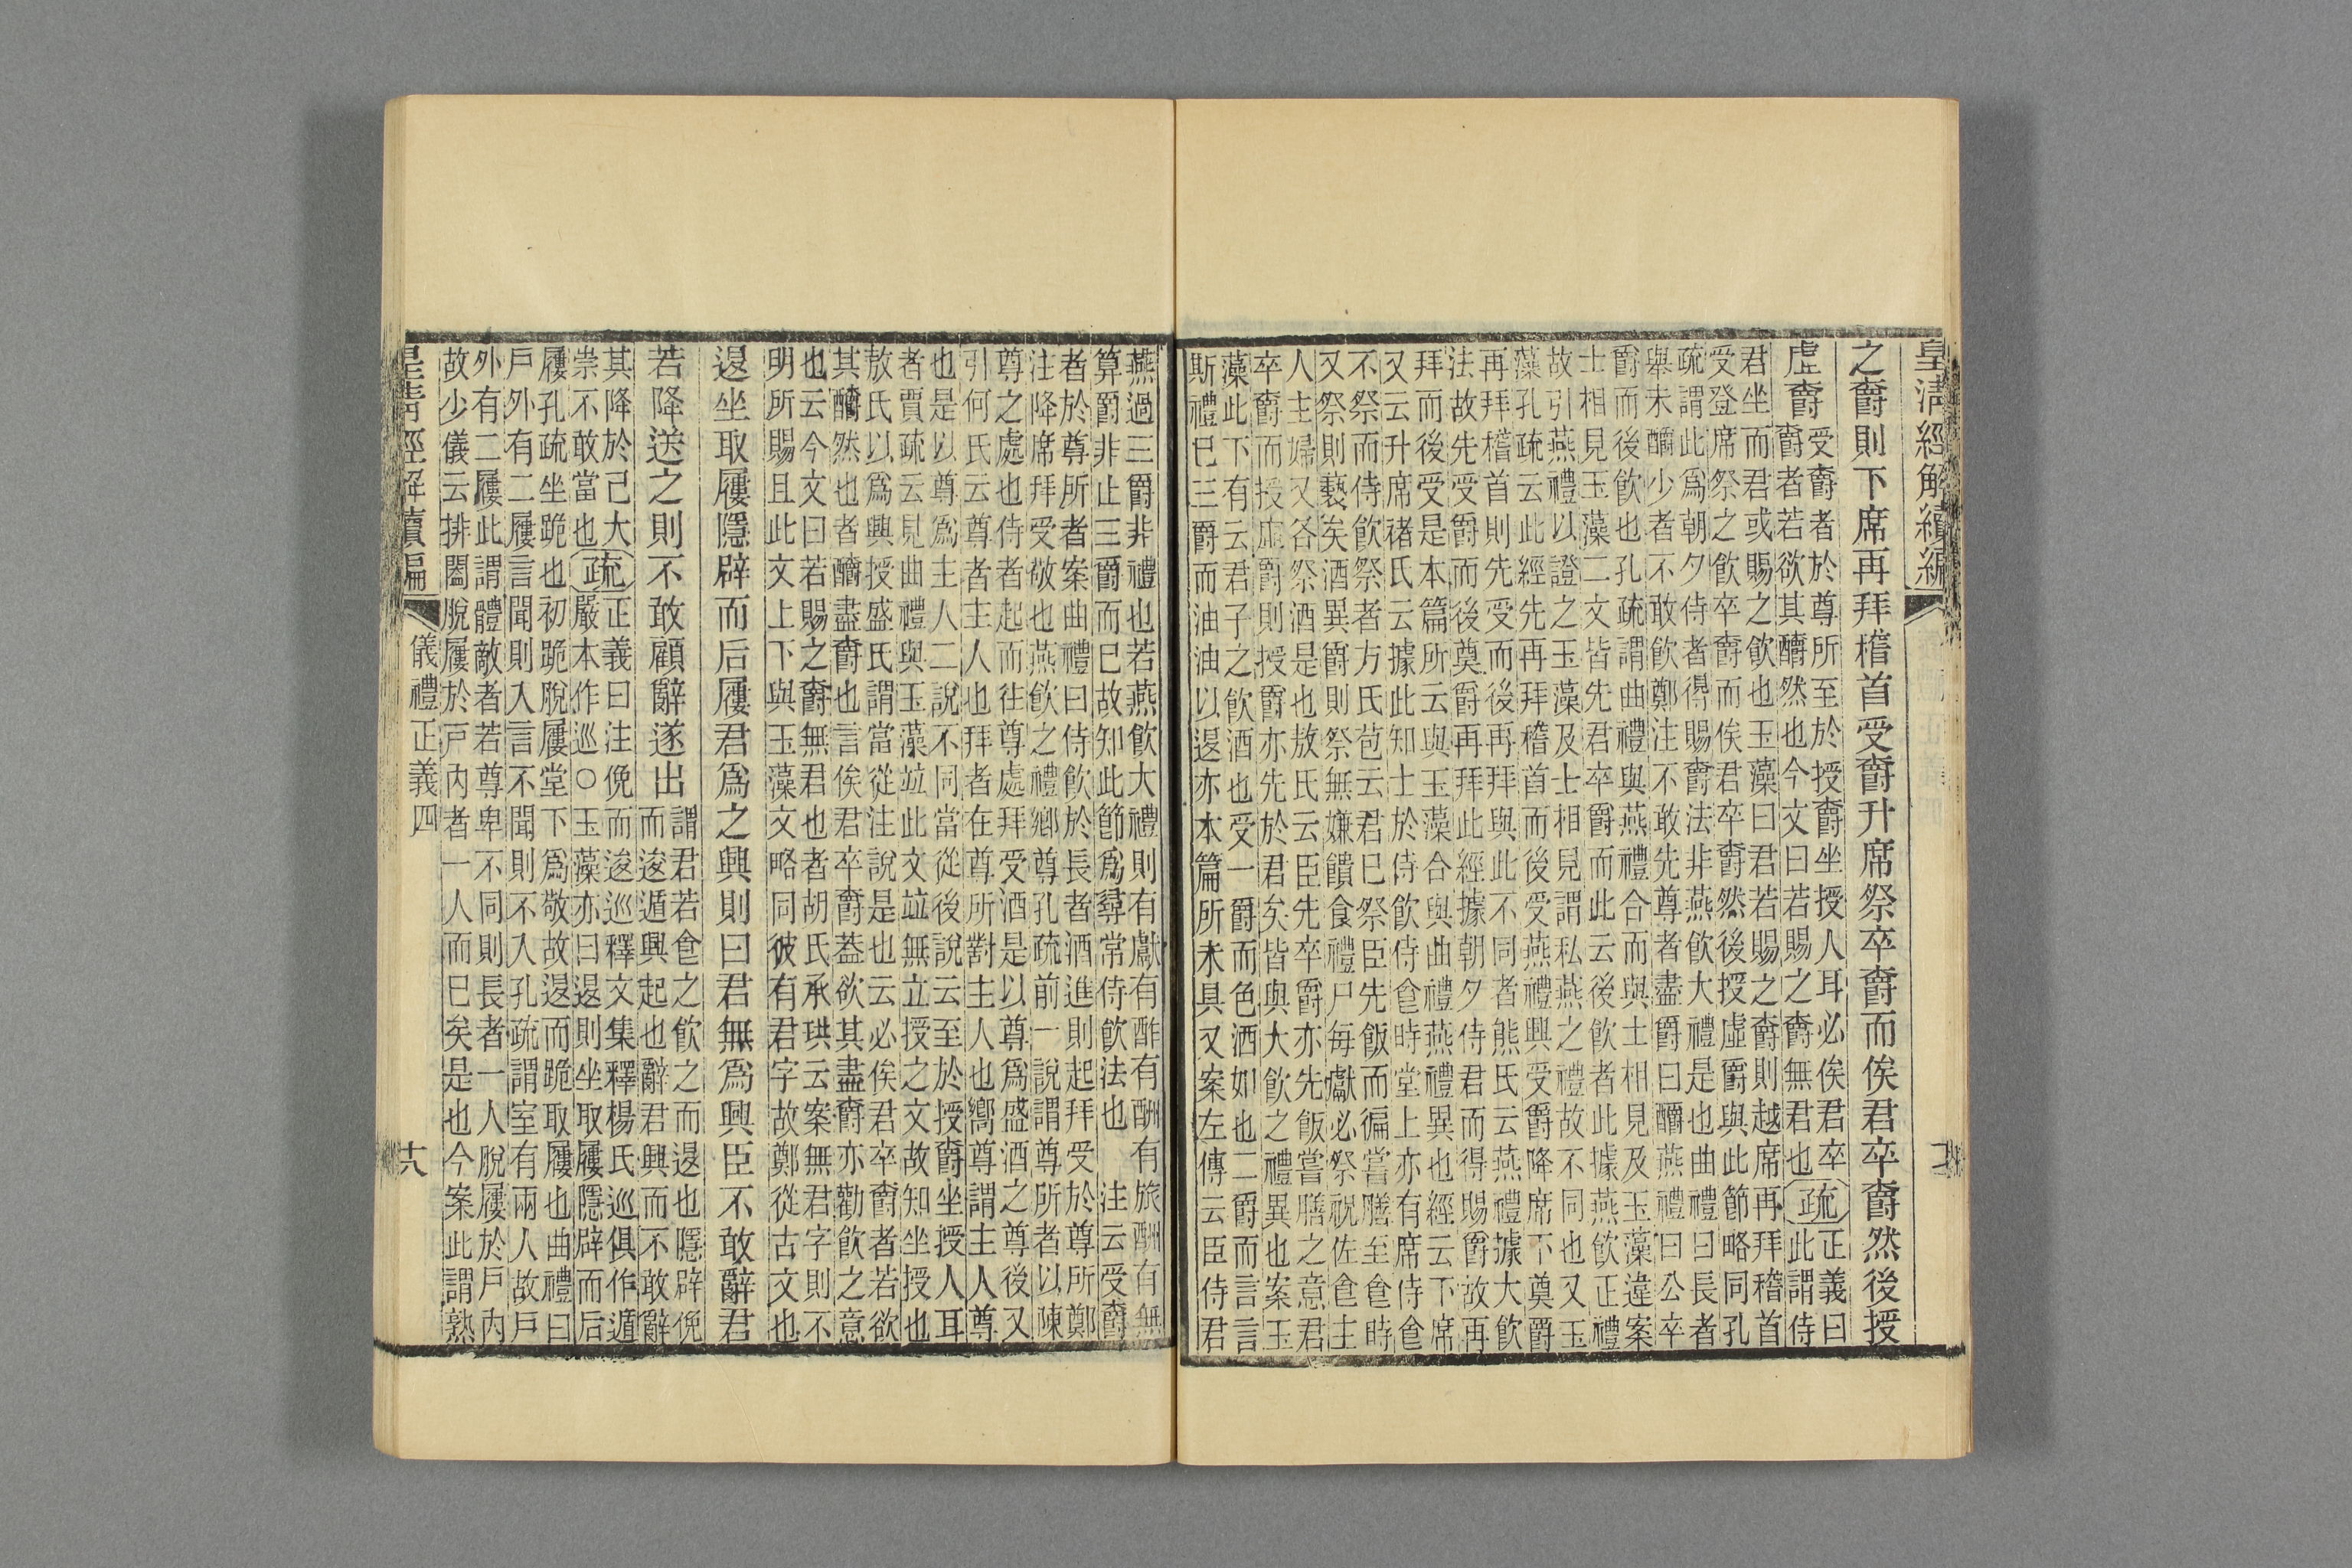 皇清經解續編
之爵則下席再拜稽首受爵升席祭卒爵而俟君卒爵然後授
虛爵
受爵者於尊所至於授爵坐授人耳必俟君卒
爵者若欲其釂然也今文曰若賜之爵無君也
疏
正義曰
此謂侍
君坐而君或賜之飲也玉藻曰君若賜之爵則越席再拜稽首
受登席祭之飲卒爵而俟君卒爵然後授虛爵與此節略同孔
疏謂此爲朝夕侍者得賜爵法非燕飲大禮是也曲禮曰長者
舉未釂少者不敢飲鄭注不敢先尊者盡爵曰釂燕禮曰公卒
爵而後飲也孔疏謂曲禮與燕禮合而與士相見及玉藻違案
士相見玉藻二文皆先君卒爵而此云後飲者此據燕飲正禮
故引燕禮以證之玉藻及士相見謂私燕之禮故不同也又玉
藻孔疏云此經先再拜稽首而後受燕禮興受爵降席下奠爵
再拜稽首則先受而後再拜與此不同者熊氏云燕禮據大飲
法故先受爵而後奠爵再拜此經據朝夕侍君而得賜爵故再
拜而後受是本篇所云與玉藻合與曲禮燕禮異也經云下席
又云升席褚氏云據此知士於侍飲侍食時堂上亦有席侍食
不祭而侍飲祭者方氏苞云君已祭臣先飯而徧嘗膳至食時
又祭則褻矣酒異爵則祭無嫌饋食禮尸每獻必祭祝佐食主
人主婦又各祭酒是也敖氏云臣先卒爵亦先飯嘗膳之意君
卒爵而授虛爵則授爵亦先於君矣皆與大飲之禮異也案玉
藻此下有云君子之飲酒也受一爵而色洒如也二爵而言言
斯禮已三爵而油油以退亦本篇所未具又案左傳云臣侍君
燕過三爵非禮也若燕飲大禮則有獻有酢有酬有旅酬有無
算爵非止三爵而已故知此節爲尋常侍飲法也　注云受爵
者於尊所者案曲禮曰侍飲於長者酒進則起拜受於尊所鄭
注降席拜受敬也燕飲之禮鄉尊孔疏前一說謂尊所者以陳
尊之處也侍者起而往尊處拜受酒是以尊爲盛酒之尊後又
引何氏云尊者主人也拜者在尊所對主人也嚮尊謂主人尊
也是以尊爲主人二說不同當從後說云至於授爵坐授人耳
者賈疏云見曲禮與玉藻竝此文竝無立授之文故知坐授也
敖氏以爲興授盛氏謂當從注說是也云必俟君卒爵者若欲
其釂然也者釂盡爵也言俟君卒爵葢欲其盡爵亦勸飲之意
也云今文曰若賜之爵無君也者胡氏承珙云案無君字則不
明所賜且此文上下與玉藻文略同彼有君字故鄭從古文也
退坐取屨隱辟而后屨君爲之興則曰君無爲興臣不敢辭君
若降送之則不敢顧辭遂出
謂君若食之飲之而退也隱辟俛
而逡遁興起也辭君興而不敢辭
其降於己大
崇不敢當也
疏
正義曰注俛而逡巡釋文集釋楊氏巡俱作遁
嚴本作巡○玉藻亦曰退則坐取屨隱辟而后
屨孔疏坐跪也初跪脫屨堂下爲敬故退而跪取屨也曲禮曰
戶外有二屨言聞則入言不聞則不入孔疏謂室有兩人故戶
外有二屨此謂體敵者若尊卑不同則長者一人脫屨於戶內
故少儀云排闔脫屨於戶內者一人而已矣是也今案此謂熟
皇清經解續編
儀禮正義四
十八